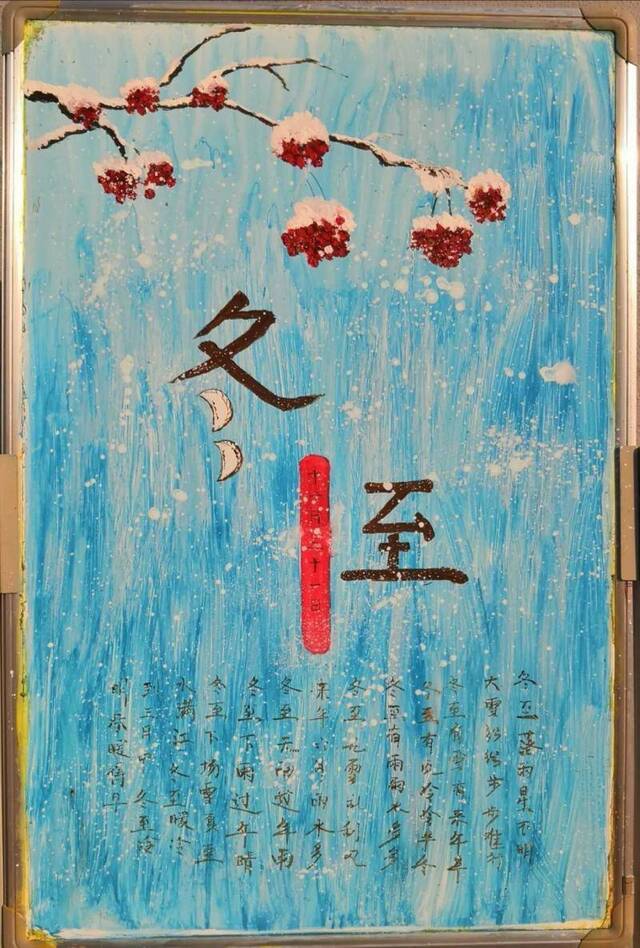 冬
至
十二月二十一日
冬至落雨星不明
大雪纷纷步步难行
冬至有雪来年旱
冬至有风冷半冬
冬至有雨雨水多
冬至雪刮风
来年六月雨水多
冬至无雨过年雨
冬至下雨过年晴
冬至下场雪夏至
水满江冬至暖冷
到三月中冬至冷
明春暖得早